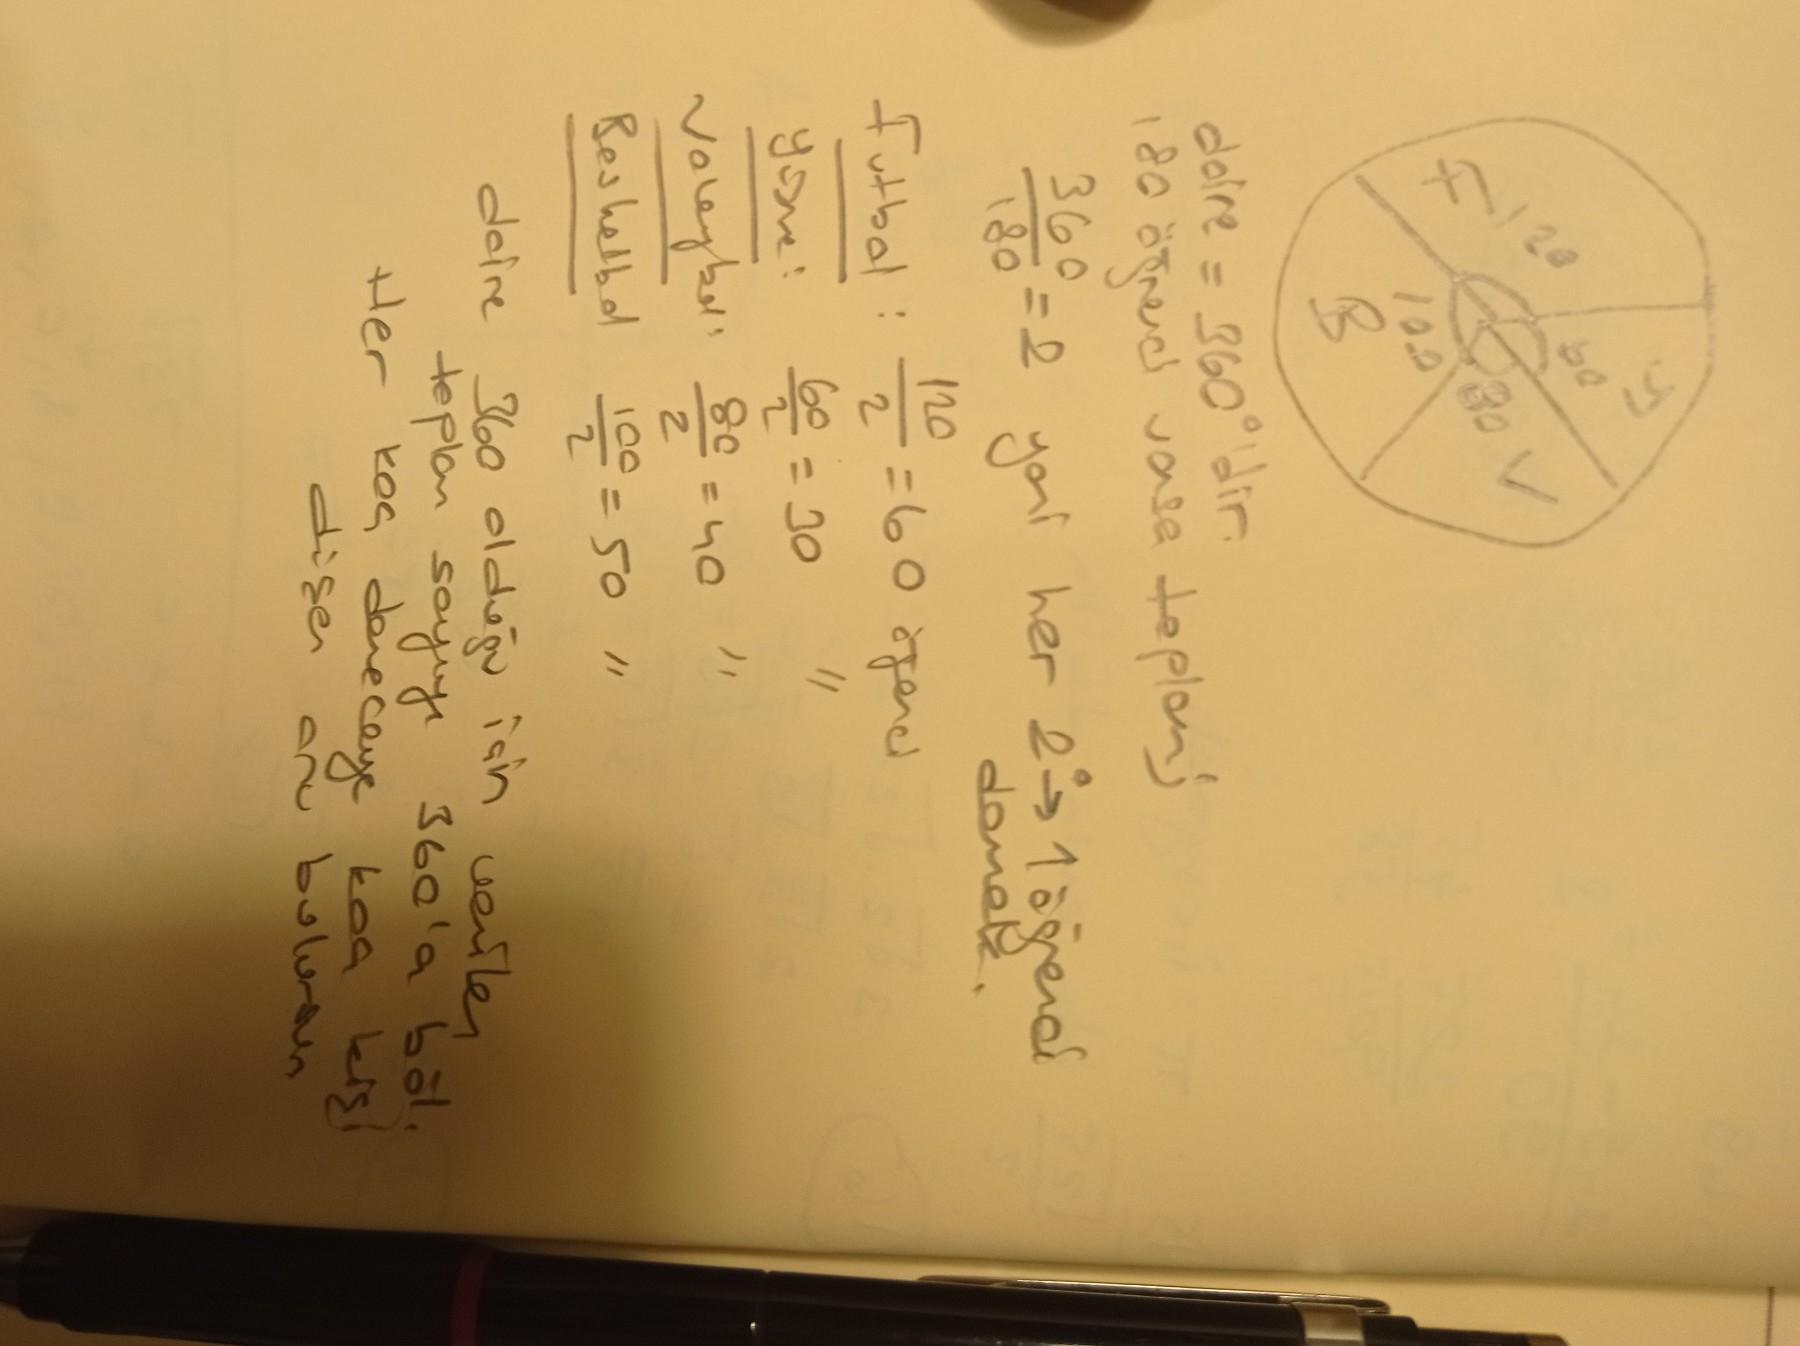 F 120
y 60
V 80
B 100
daire = 360° dir.
180 öğrenci varsa toplamj
360
180 = 2 yani her 2° → 1 öğrenci
demek.
Futbol : 120
2 = 60 öğrenci
Yüzme : 60
2 = 30 "
Voleybol: 80
2 = 40 "
Basketbol 100
2 = 50 "
daire 360 olduğu için verilen
toplam sayıyı 360'a böl.
Her kaç dereceye kaç kişi
düşer onu bulursun